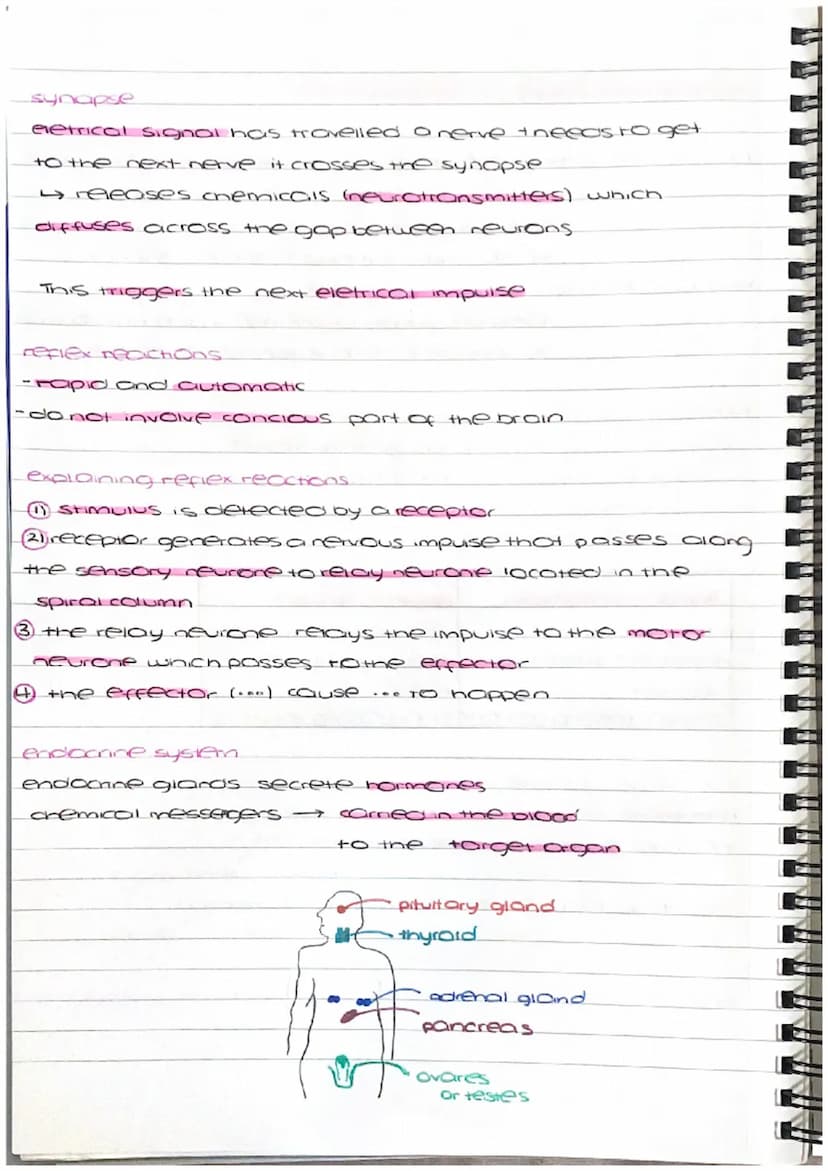 synapse
eletrical signal has travelled a nerve + needs to get
to the next nerve it crosses the synapse
↳ releases chemicals (neurotransmitters) which
diffuses across the gap between neurons
This triggers the next eletrical impulse
reflex reactions
- rapid and automatic
- do not involve concious part of the brain
explaining reflex reactions
① stimulus is detected by a receptor
② receptor generates a nervous impulse that passes along
the sensory neurone to relay neurone located in the
spiral column
③ the relay neurone relays the impulse to the motor
neurone which passes to the effector
④ the effector (...) cause ... to happen
endocrine system
endocrine glands secrete hormones
chemical messegers → carried in the blood
to the target organ
pituitary gland
thyroid
adrenal gland
pancreas
ovares
or testes